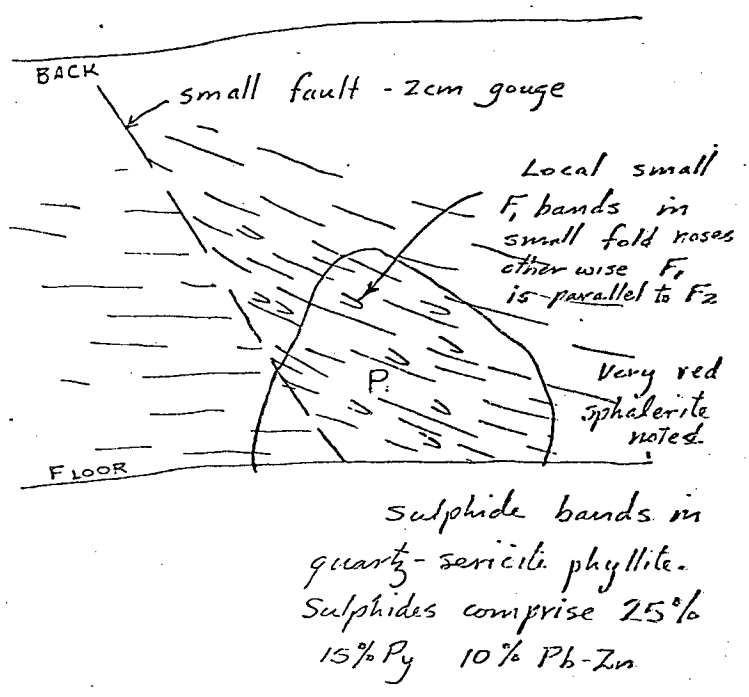 BACK
small fault - 2cm gouge
Local small
F1 bands in
small fold noses
otherwise F1
is parallel to F2
P.
Very red
sphalerite
noted.
FLOOR
Sulphide bands in
quartz-sericite phyllite.
Sulphides comprise 25%
15% Py 10% Pb-Zn